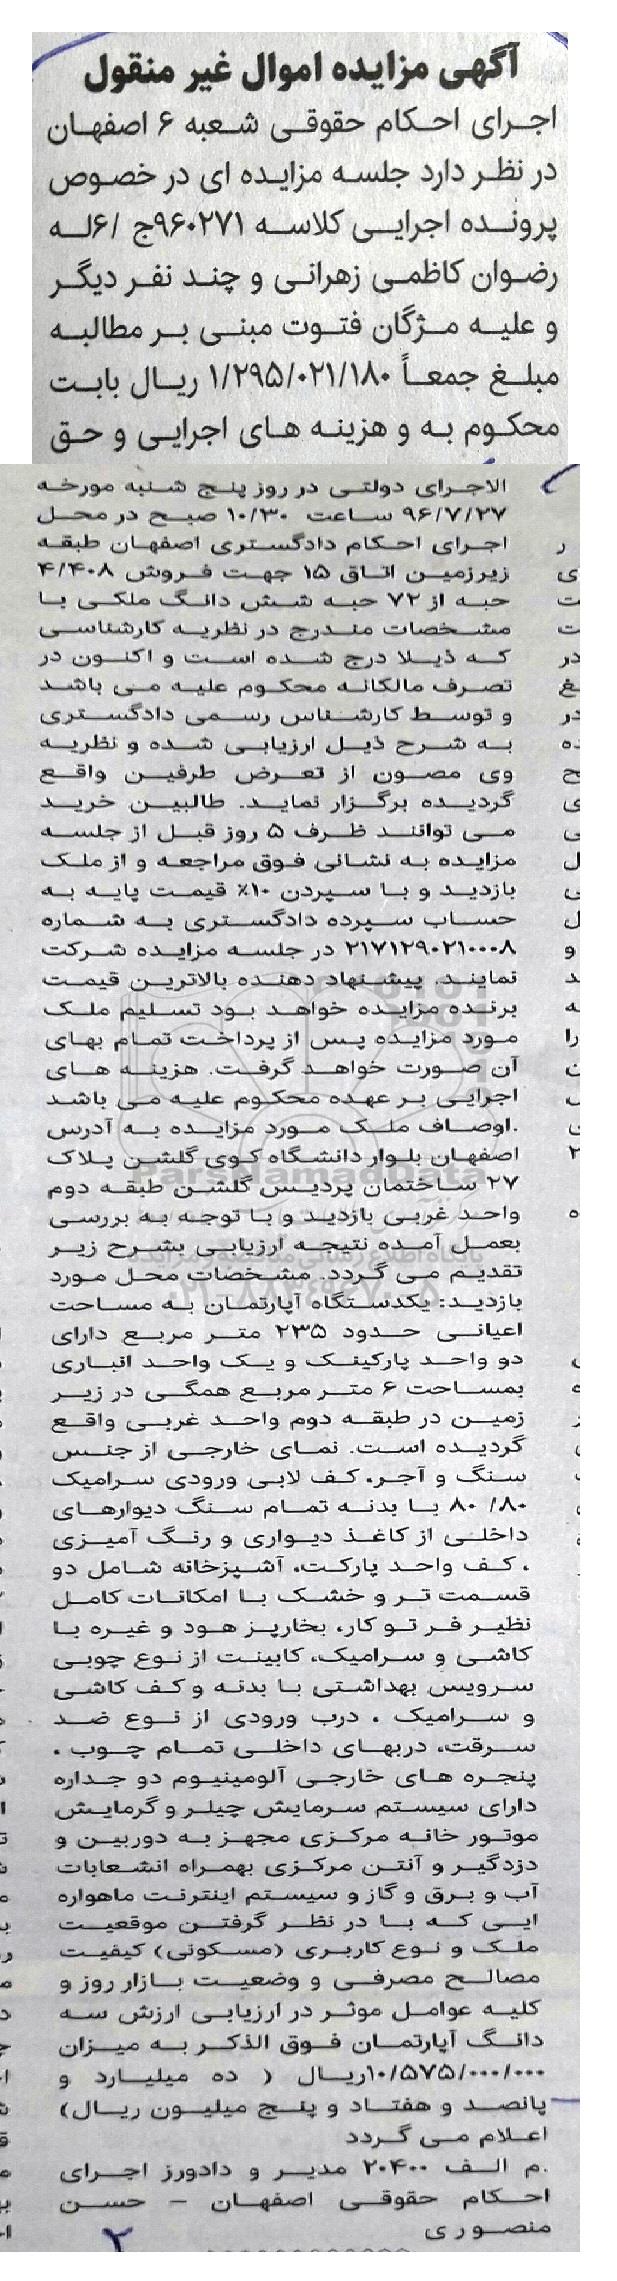 آگهی مزایده اموال غیر منقول
اجرای احکام حقوقی شعبه ۶ اصفهان
در نظر دارد جلسه مزایده ای در خصوص
پرونده اجرایی کلاسه ۹۶۰۲۷۱ج /۶له
رضوان کاظمی زهرانی و چند نفر دیگر
و علیه مژگان فتوت مبنی بر مطالبه
مبلغ جمعاً ۱/۲۹۵/۰۲۱/۱۸۰ ریال بابت
محکوم به و هزینه های اجرایی و حق
الاجرای دولتی در روز پنج شنبه مورخه
۹۶/۷/۲۷ ساعت ۱۰/۳۰ صبح در محل
اجرای احکام دادگستری اصفهان طبقه
زیرزمین اتاق ۱۵ جهت فروش ۴/۴۰۸
حبه از ۷۲ حبه شش دانگ ملکی با
مشخصات مندرج در نظریه کارشناسی
که ذیلا درج شده است و اکنون در
تصرف مالکانه محکوم علیه می باشد
و توسط کارشناس رسمی دادگستری
به شرح ذیل ارزیابی شده و نظریه
وی مصون از تعرض طرفین واقع
گردیده برگزار نماید. طالبین خرید
می توانند ظرف ۵ روز قبل از جلسه
مزایده به نشانی فوق مراجعه و از ملک
بازدید و با سپردن ۱۰٪ قیمت پایه به
حساب سپرده دادگستری به شماره
۲۱۷۱۲۹۰۲۱۰۰۰۸ در جلسه مزایده شرکت
نمایند. پیشنهاد دهنده بالاترین قیمت
برنده مزایده خواهد بود تسلیم ملک
مورد مزایده پس از پرداخت تمام بهای
آن صورت خواهد گرفت. هزینه های
اجرایی بر عهده محکوم علیه می باشد
.اوصاف ملک مورد مزایده به آدرس
اصفهان بلوار دانشگاه کوی گلشن پلاک
۲۷ ساختمان پردیس گلشن طبقه دوم
واحد غربی بازدید و با توجه به بررسی
بعمل آمده نتیجه ارزیابی بشرح زیر
تقدیم می گردد. مشخصات محل مورد
بازدید: یکدستگاه آپارتمان به مساحت
اعیانی حدود ۲۳۵ متر مربع دارای
دو واحد پارکینک و یک واحد انباری
بمساحت ۶ متر مربع همگی در زیر
زمین در طبقه دوم واحد غربی واقع
گردیده است. نمای خارجی از جنس
سنگ و آجر، کف لابی ورودی سرامیک
۸۰/ ۸۰ با بدنه تمام سنگ دیوارهای
داخلی از کاغذ دیواری و رنگ آمیزی
، کف واحد پارکت، آشپزخانه شامل دو
قسمت تر و خشک با امکانات کامل
نظیر فر تو کار، بخارپز هود و غیره با
کاشی و سرامیک، کابینت از نوع چوبی
سرویس بهداشتی با بدنه و کف کاشی
و سرامیک ، درب ورودی از نوع ضد
سرقت، دربهای داخلی تمام چوب ،
پنجره های خارجی آلومینیوم دو جداره
دارای سیستم سرمایش چیلر و گرمایش
موتور خانه مرکزی مجهز به دوربین و
دزدگیر و آنتن مرکزی بهمراه انشعابات
آب و برق و گاز و سیستم اینترنت ماهواره
ایی که با در نظر گرفتن موقعیت
ملک و نوع کاربری (مسکونی) کیفیت
مصالح مصرفی و وضعیت بازار روز و
کلیه عوامل موثر در ارزیابی ارزش سه
دانگ آپارتمان فوق الذکر به میزان
۱۰/۵۷۵/۰۰۰/۰۰۰ریال ( ده میلیارد و
پانصد و هفتاد و پنج میلیون ریال)
اعلام می گردد
.م الف ۲۰۴۰۰ مدیر و دادورز اجرای
احکام حقوقی اصفهان – حسن
منصوری
۲